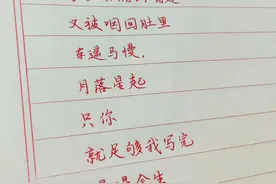 又被咽回肚里
车遥马慢，
月落星起
只你
就足够我写完